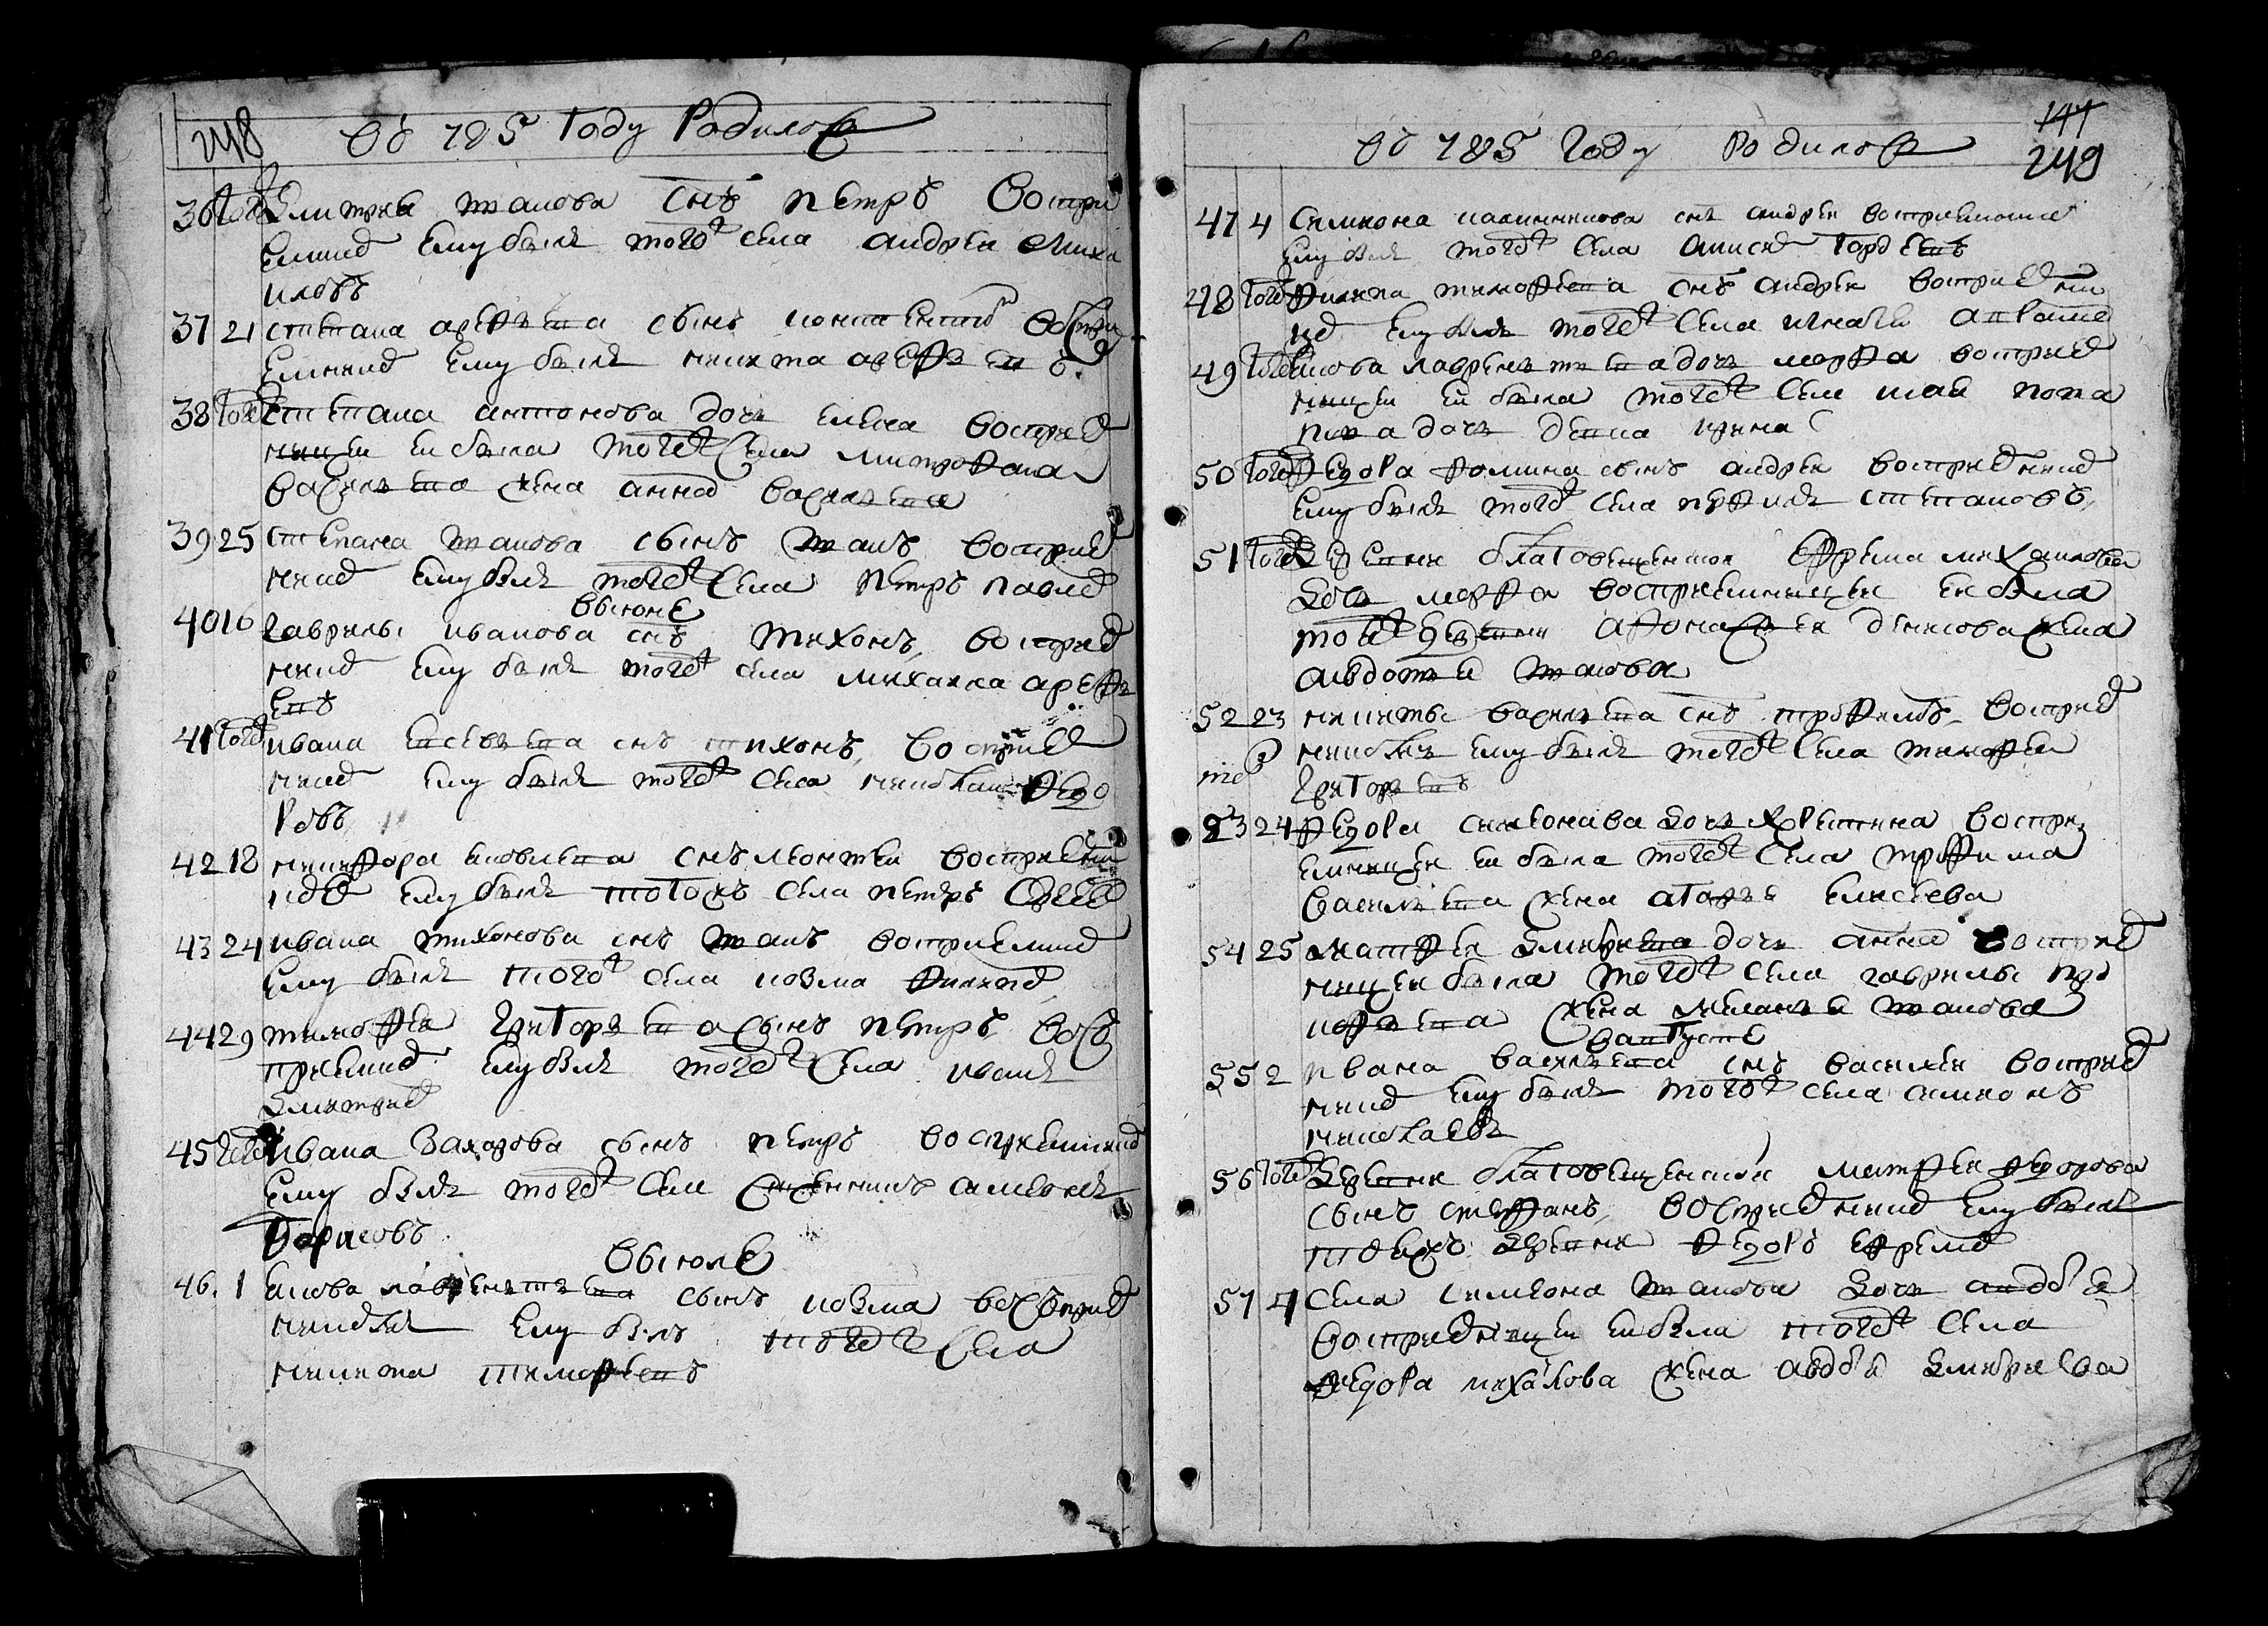 248 Въ 785 Году Родилося
36 тогож Дмитриева Іванова снъ петръ воспри
емник ему былъ тогож села андреи Миха
иловъ
37 21 степана арефьева сынъ воспри
емник ему былъ никита арефьевъ
38 тогож степана антонова дочь елена восприем
ницеи еи была тогож села митрофана
васильева жена анна васильева
39 25 степана Іванова сынъ Іванъ восприем
ник ему былъ тогож села петръ павло
Въ июне
40 16 гаврилы иванова снъ тихонъ восприем
ник ему былъ тогож села михаила арефь
евъ
41 тогож ивана евсевьева снъ тихонъ восприем
ник ему былъ тогож села николаи федо
ровъ
42 18 никифора яковлева снъ леонтеи восприемни
комъ ему былъ тогожъ села петръ
43 24 ивана тихонова снъ Іванъ восприемник
ему былъ тогож села козма филип
44 29 тимофея григорьева сынъ петръ вос
приемник ему былъ тогож села иванъ
Дмитрие
45 тогож ивана Захарова сынъ петръ восприемник
ему былъ тогож села священникъ симеонъ
борисовъ
Въ июле
46. 1 якова лаврентьева сынъ козма восприем
никомъ ему былъ тогож села
никита тимофеевъ
141
249
Въ 785 году Родилося
47 4 Симиона калинникова снъ андреи восприемник
ему былъ тогож села алексеи гордеевъ
48 тогож филипа тимофеева снъ андреи восприемни
ко ему былъ тогож села игнатеи
49 тогож якова лаврентьева дочь марфа восприем
ницеи еи была тогож села попа
дочь девка ирина
50 тогож федора фомина сынъ андреи восприемник
ему былъ тогож села перфилъ степановъ
51 тогож Деревни благовещенскои Ефрема михаилова
дочь марфа восприемницеи еи была
тогож деревни афонасеи денисова жена
авдотья Іванова
52 23 никиты васильева снъ трофимъ восприем
никомъ ему былъ тогож села тимофеи
григорьевъ
53 24 федора симеонова дочь христина воспри
емницеи еи была тогож села трофима
васильева жена агафья елисеева
54 25 матфея Дмитриева дочь анна восприем
ницеи была тогож села гаврилы про
кофьева жена меланья Іванова
Въ августе
55 2 ивана васильева снъ василеи восприем
ник ему былъ тогож села симионъ
николаевъ
56 тогож Деревни благовещенскои матфея федорова
сынъ стефанъ восприемник ему былъ
тоежъ деревни федоръ ефремо
57 4 села симеона Іванова дочь авдотья
восприемницеи еи была тогож села
федора михаилова жена авдотья Дмитриева